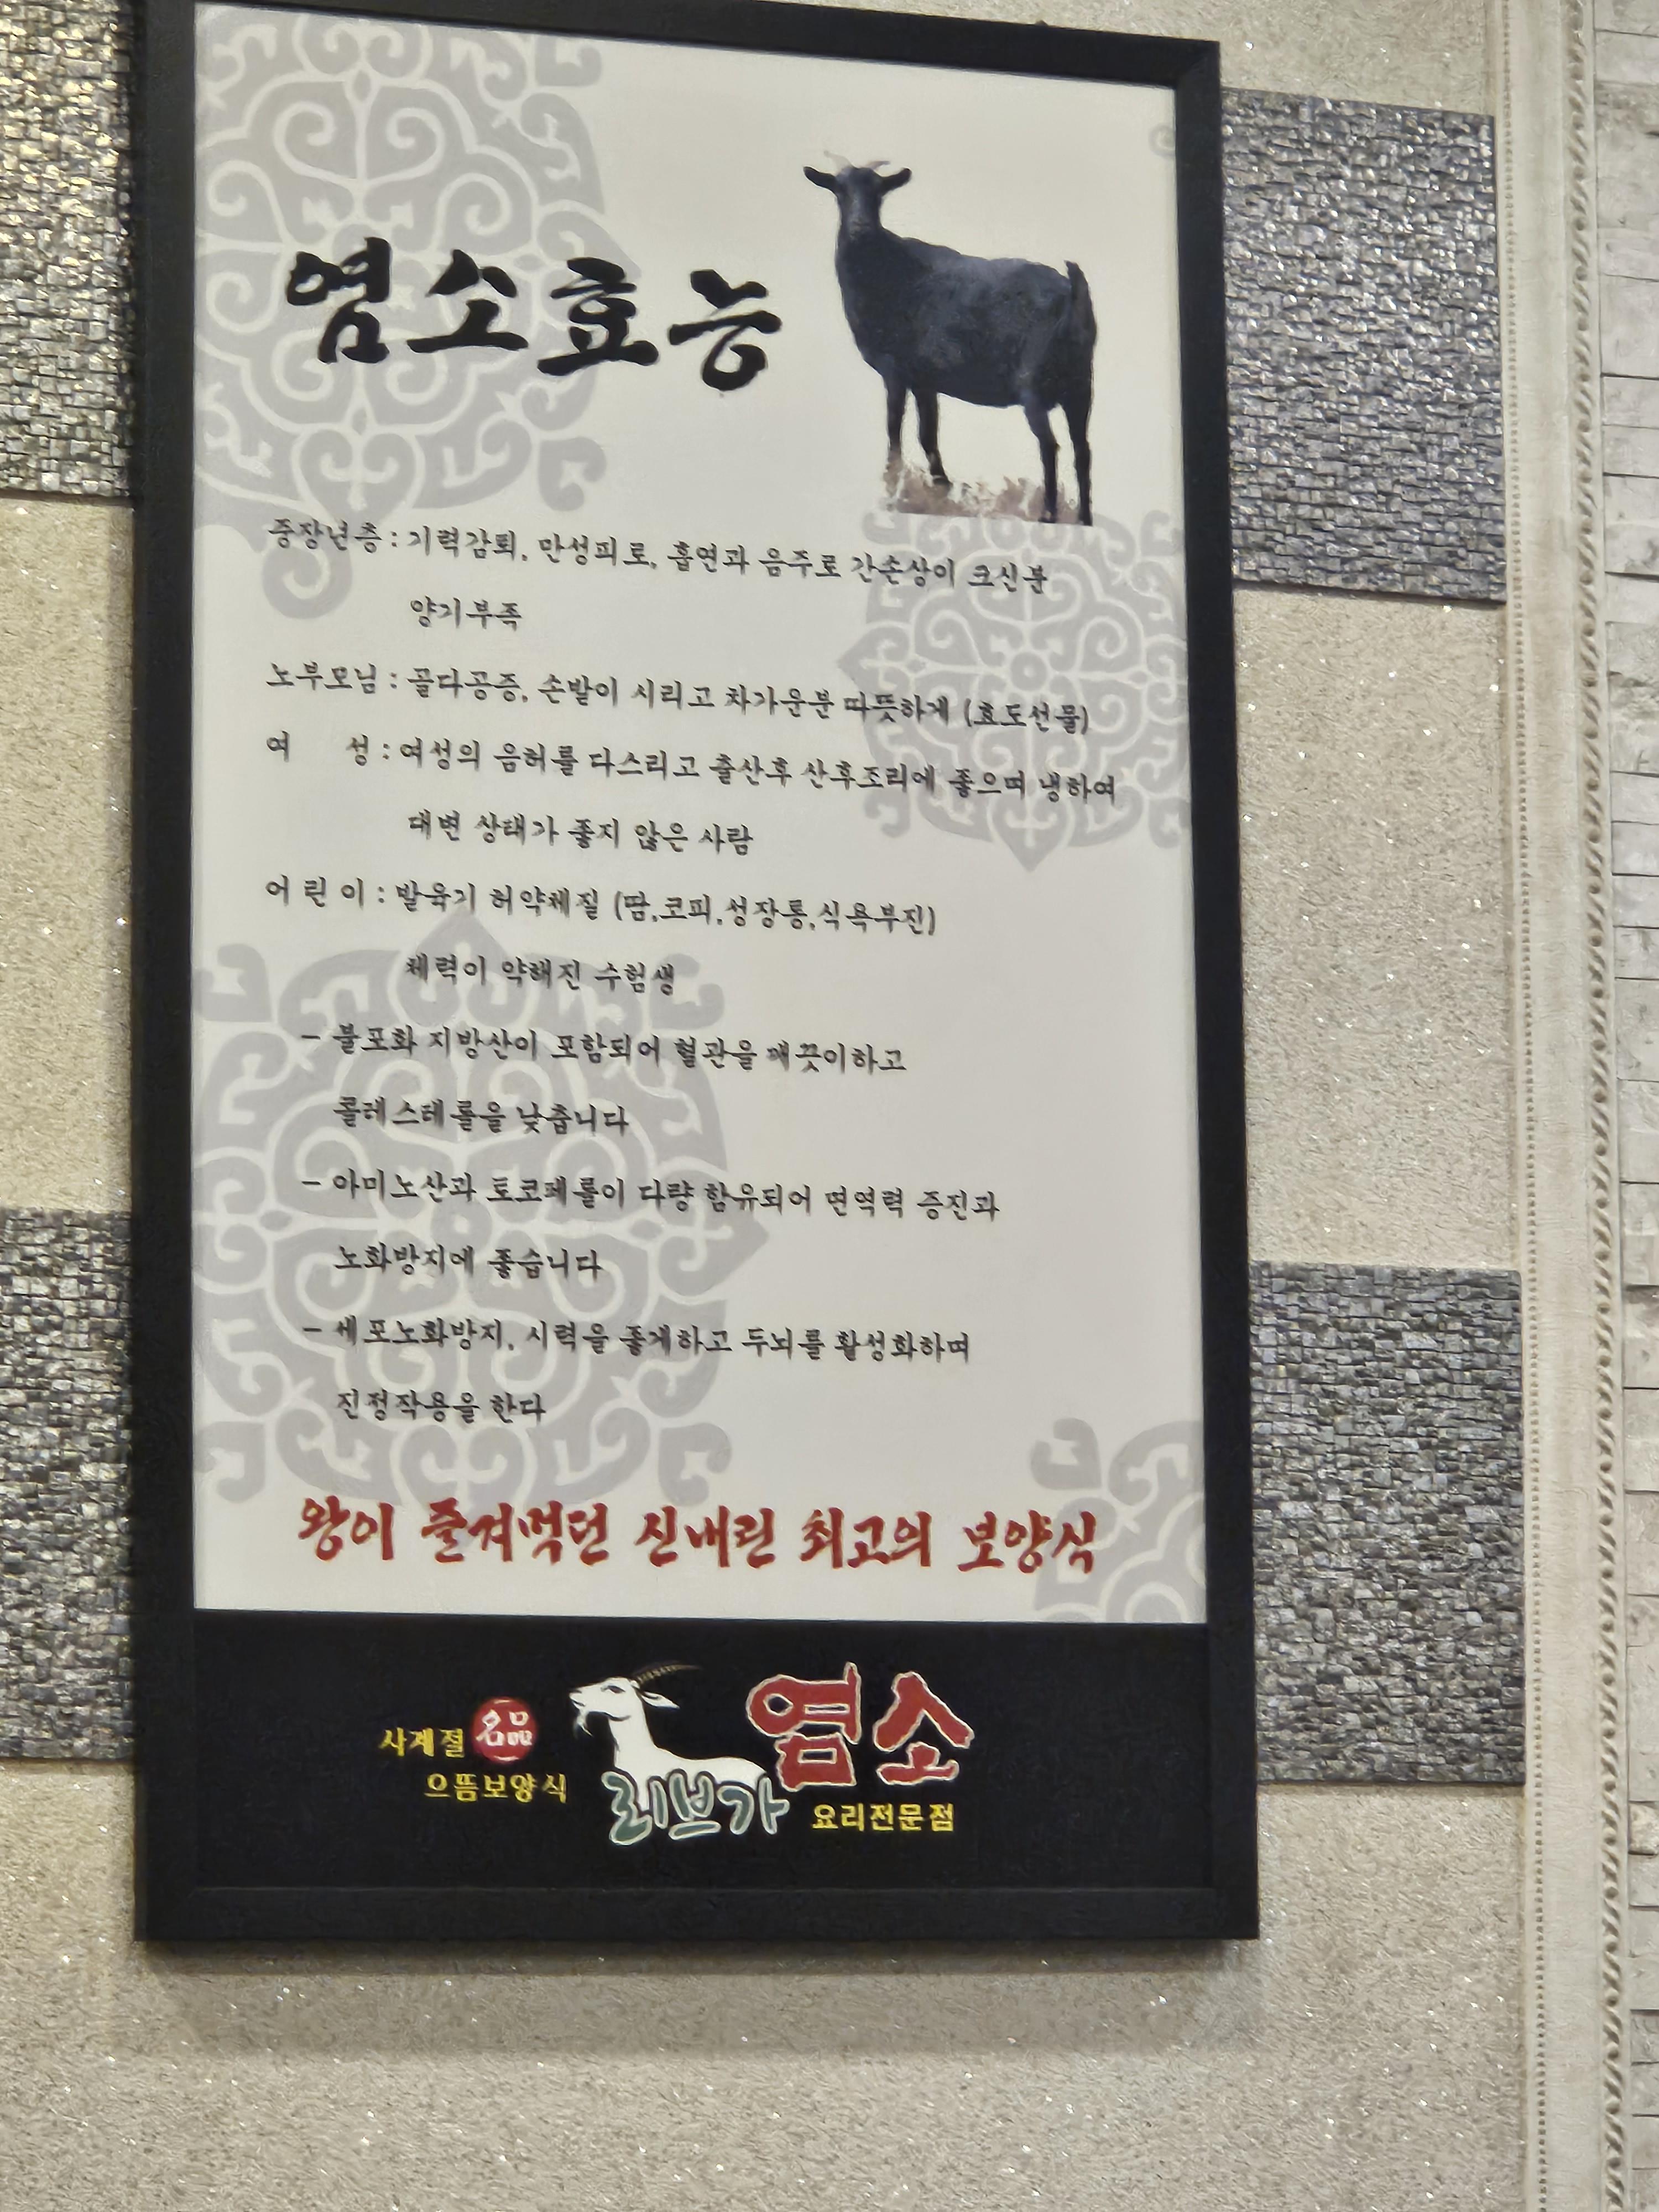 염소효능
중장년층 : 기력감퇴, 만성피로, 흡연과 음주로 간손상이 크신분
양기부족
노부모님 : 골다공증, 손발이 시리고 차가운분 따뜻하게 (효도선물)
여 성 : 여성의 음허를 다스리고 출산후 산후조리에 좋으며 냉하여
대변 상태가 좋지 않은 사람
어 린 이 : 발육기 허약체질 (땀,코피,성장통,식욕부진)
체력이 약해진 수험생
- 불포화 지방산이 포함되어 혈관을 깨끗이하고
콜레스테롤을 낮춥니다
- 아미노산과 토코페롤이 다량 함유되어 면역력 증진과
노화방지에 좋습니다
- 세포노화방지, 시력을 좋게하고 두뇌를 활성화하며
진정작용을 한다
왕이 즐겨먹던 신내린 최고의 보양식
사계절 名品
으뜸보양식
염소
리브가
요리전문점